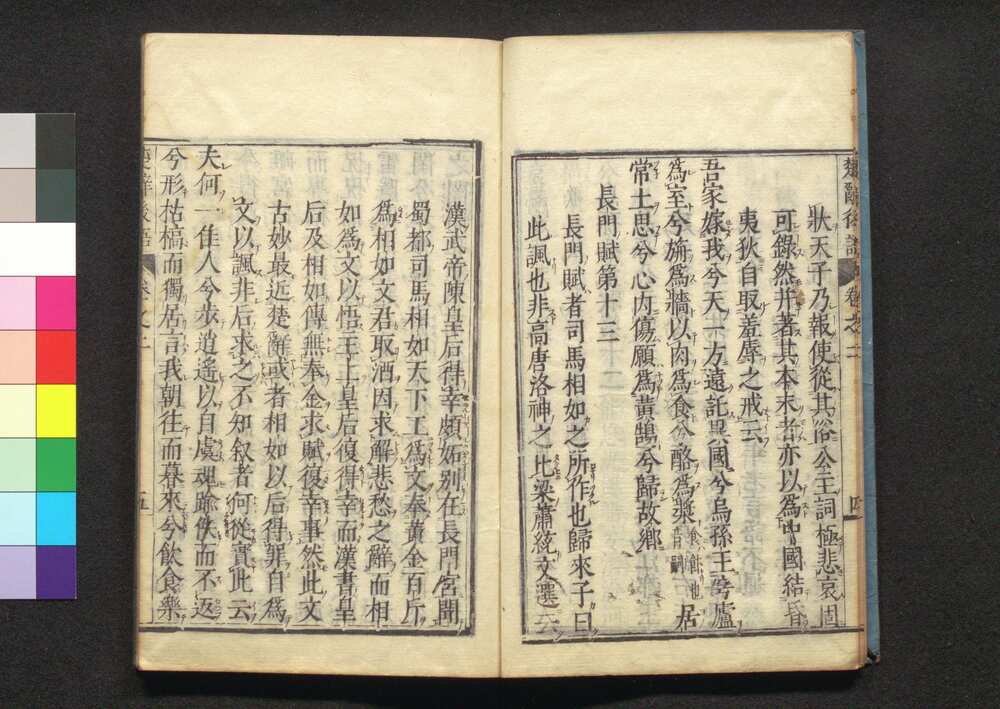 楚辭後語 卷之二 四
狀天子乃報使從其俗公主詞極悲哀固
可錄然并著其本末者亦以爲中國結昏
夷狄自取羞辱之戒云
吾家嫁我兮天一方遠託異國兮烏孫王穹廬
爲室兮旃爲牆以肉爲食兮酪爲漿居
常土思兮心內傷願爲黃鵠兮歸故鄉
長門賦第十三
長門賦者司馬相如之所作也歸來子曰
此諷也非高唐洛神之比梁蕭統文選云
漢武帝陳皇后得幸頗妬別在長門宮聞
蜀都司馬相如天下工爲文奉黃金百斤
爲相如文君取酒因求解悲愁之辭而相
如爲文以悟主上皇后復得幸而漢書皇
后及相如傳無奉金求賦復幸事然此文
古妙最近楚辭或者相如以后得罪自爲
文以諷非后求之不知叙者何從實此云
夫何一佳人兮步逍遙以自虞魂踰佚而不返
兮形枯槁而獨居言我朝往而暮來兮飮食樂
楚辭後語 卷之二 五